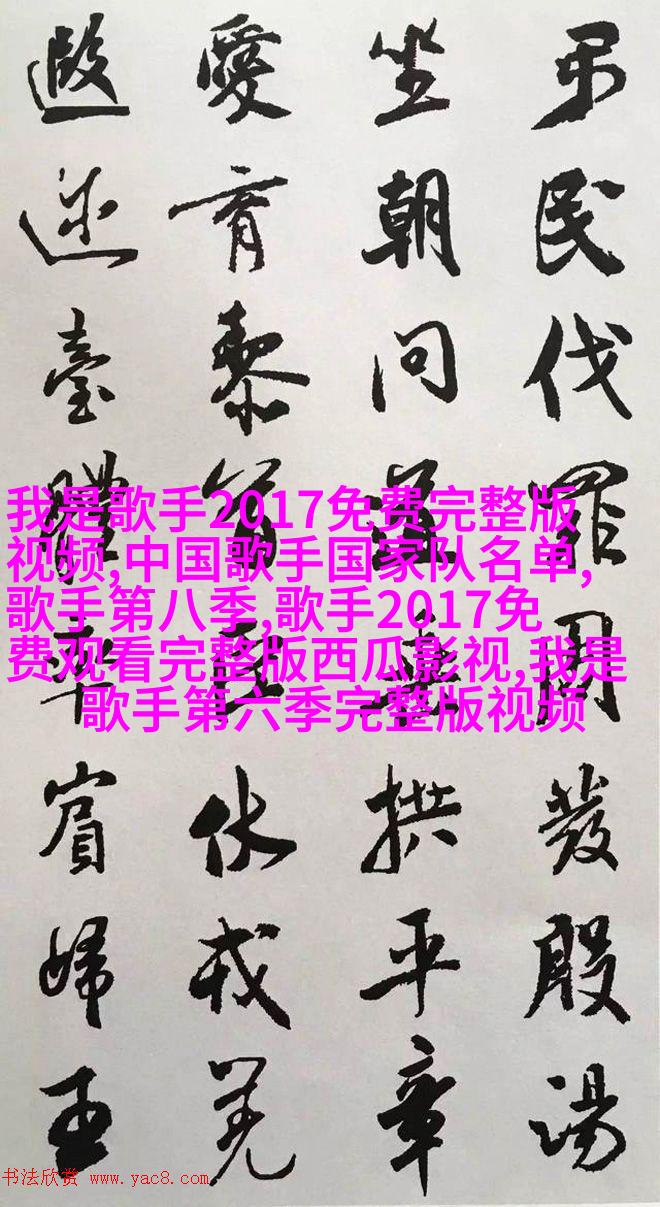 弔民伐罪周發殷湯
坐朝問道垂拱平章
愛育黎首臣伏戎羌
遐迩壹體率賓歸王
我是歌手2017免费完整版
视频,中国歌手国家队名单,
歌手第八季,歌手2017免
费观看完整版西瓜影视,我是
歌手第六季完整版视频
书法欣赏 www.yac8.com